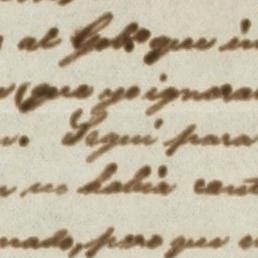 al Gob.º que in
(que yo ignora
Seguí para
no habia cont
nado, pero que e